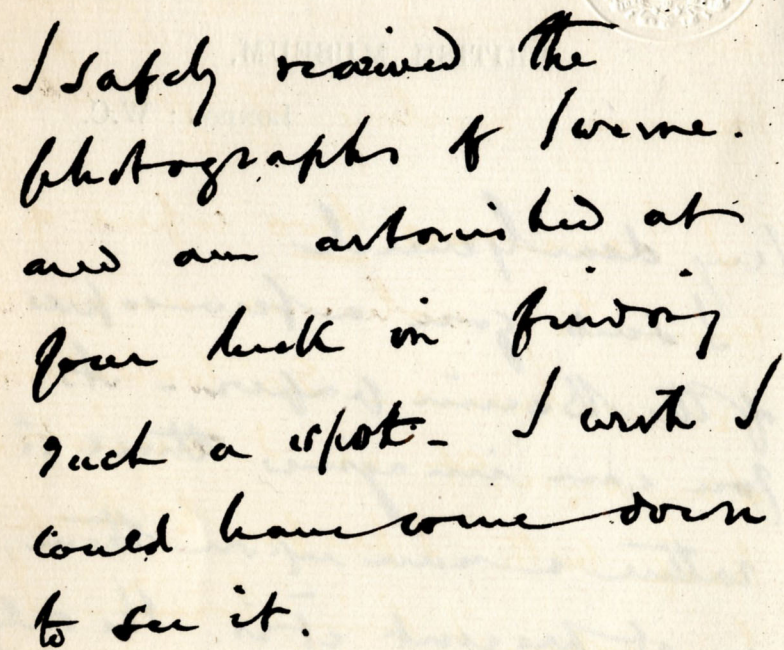 I safely received the
photographs of Iwerne.
and am astonished at
your luck in finding
such a spot - I wish I
could have come down
to see it.